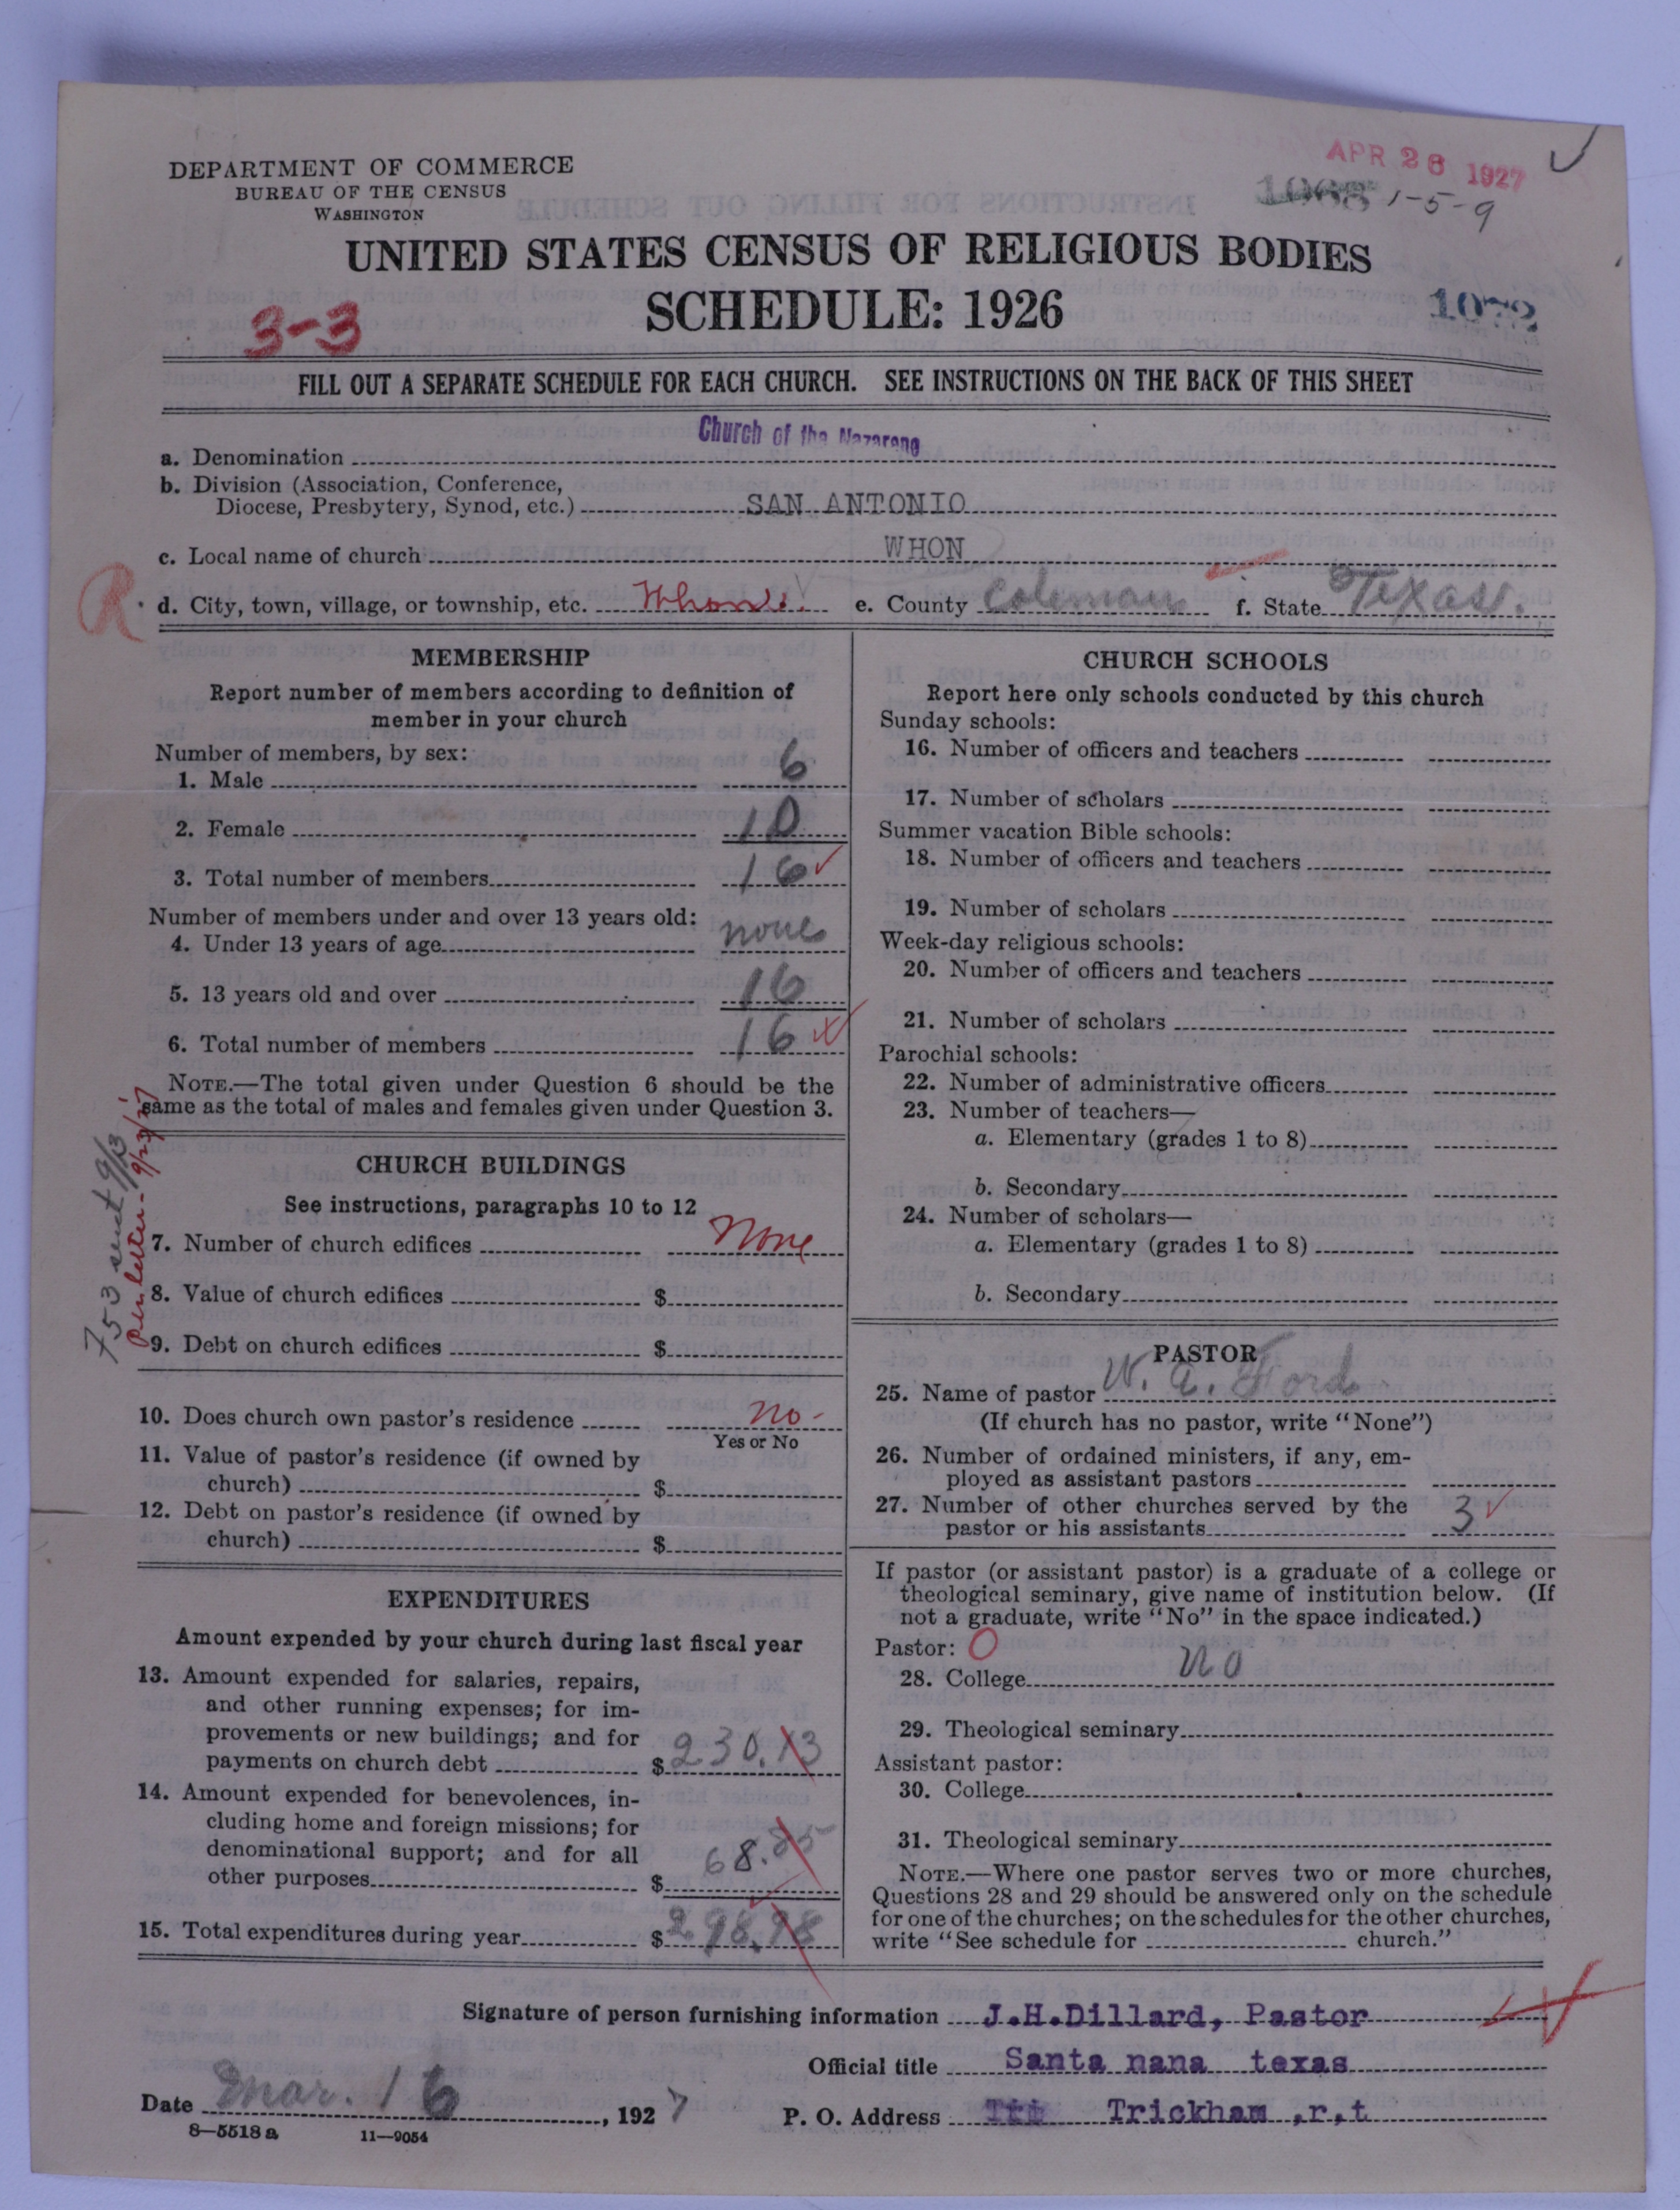 APR 26 1927
DEPARTMENT OF COMMERCE
BUREAU OF THE CENSUS
WASHINGTON
1-5-9
UNITED STATES CENSUS OF RELIGIOUS BODIES
SCHEDULE: 1926
3-3
1072
FILL OUT A SEPARATE SCHEDULE FOR EACH CHURCH. SEE INSTRUCTIONS ON THE BACK OF THIS SHEET
a. Denomination Church of the Nazarene
b. Division (Association, Conference,
Diocese, Presbytery, Synod, etc.) SAN ANTONIO
c. Local name of church WHON
R
d. City, town, village, or township, etc. Whon e. County Coleman f. State Texas.
MEMBERSHIP
Report number of members according to definition of
member in your church
Number of members, by sex:
1. Male 6
2. Female 10
3. Total number of members 16
Number of members under and over 13 years old:
4. Under 13 years of age none
5. 13 years old and over 16
6. Total number of members 16
NOTE.—The total given under Question 6 should be the
same as the total of males and females given under Question 3.
753 sent 9/3
per letter - 9/23/27
CHURCH BUILDINGS
See instructions, paragraphs 10 to 12
7. Number of church edifices None
8. Value of church edifices $
9. Debt on church edifices $
10. Does church own pastor's residence no-
Yes or No
11. Value of pastor's residence (if owned by
church) $
12. Debt on pastor's residence (if owned by
church) $
EXPENDITURES
Amount expended by your church during last fiscal year
13. Amount expended for salaries, repairs,
and other running expenses; for im-
provements or new buildings; and for
payments on church debt $230.13
14. Amount expended for benevolences, in-
cluding home and foreign missions; for
denominational support; and for all
other purposes $68.85
15. Total expenditures during year $298.98
CHURCH SCHOOLS
Report here only schools conducted by this church
Sunday schools:
16. Number of officers and teachers
17. Number of scholars
Summer vacation Bible schools:
18. Number of officers and teachers
19. Number of scholars
Week-day religious schools:
20. Number of officers and teachers
21. Number of scholars
Parochial schools:
22. Number of administrative officers
23. Number of teachers—
a. Elementary (grades 1 to 8)
b. Secondary
24. Number of scholars—
a. Elementary (grades 1 to 8)
b. Secondary
PASTOR
25. Name of pastor W. A. Ford
(If church has no pastor, write "None")
26. Number of ordained ministers, if any, em-
ployed as assistant pastors
27. Number of other churches served by the
pastor or his assistants 3
If pastor (or assistant pastor) is a graduate of a college or
theological seminary, give name of institution below. (If
not a graduate, write "No" in the space indicated.)
Pastor: O
28. College no
29. Theological seminary
Assistant pastor:
30. College
31. Theological seminary
NOTE.—Where one pastor serves two or more churches,
Questions 28 and 29 should be answered only on the schedule
for one of the churches; on the schedules for the other churches,
write "See schedule for church."
Signature of person furnishing information J.H.Dillard, Pastor
Official title Santa nana texas
Date Mar. 16, 1927 P. O. Address Trickham ,r,t
8—5518 a 11—9054